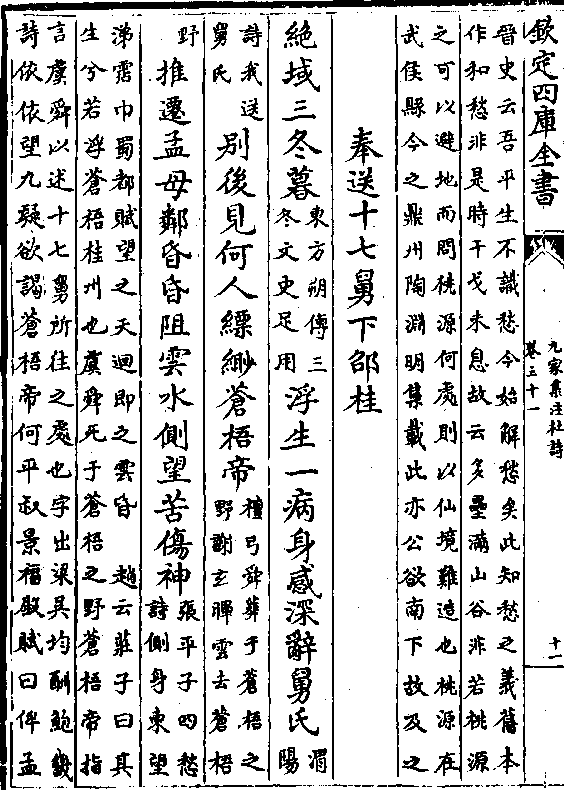 欽定四庫全書
九家集注杜詩
卷三十一
十一
晉史云吾平生不識愁今始解愁矣此知愁之義舊本
作和愁非是時干戈未息故云多壘滿山谷非若桃源
之可以避地而問桃源何處則以仙境難造也桃源在
武陵縣今之鼎州陶淵明集載此亦公欲南下故及之
奉送十七舅下邵桂
絶域三冬暮東方朔傳三冬文史足用浮生一病身感深辭舅氏渭陽
詩我送舅氏别後見何人縹緲蒼梧帝檀弓舜葬于蒼梧之野謝玄暉雲去蒼梧
野推遷孟母鄰昏昏阻雲水側望苦傷神張平子四愁詩側身東望
涕霑巾蜀都賦望之天迴即之雲昏趙云莊子曰其
生兮若浮蒼梧桂州也虞舜死于蒼梧之野蒼梧帝指
言虞舜以述十七舅所往之處也字出梁吳均酬鮑幾
詩依依望九疑欲謁蒼梧帝何平叔景福殿賦曰俾孟